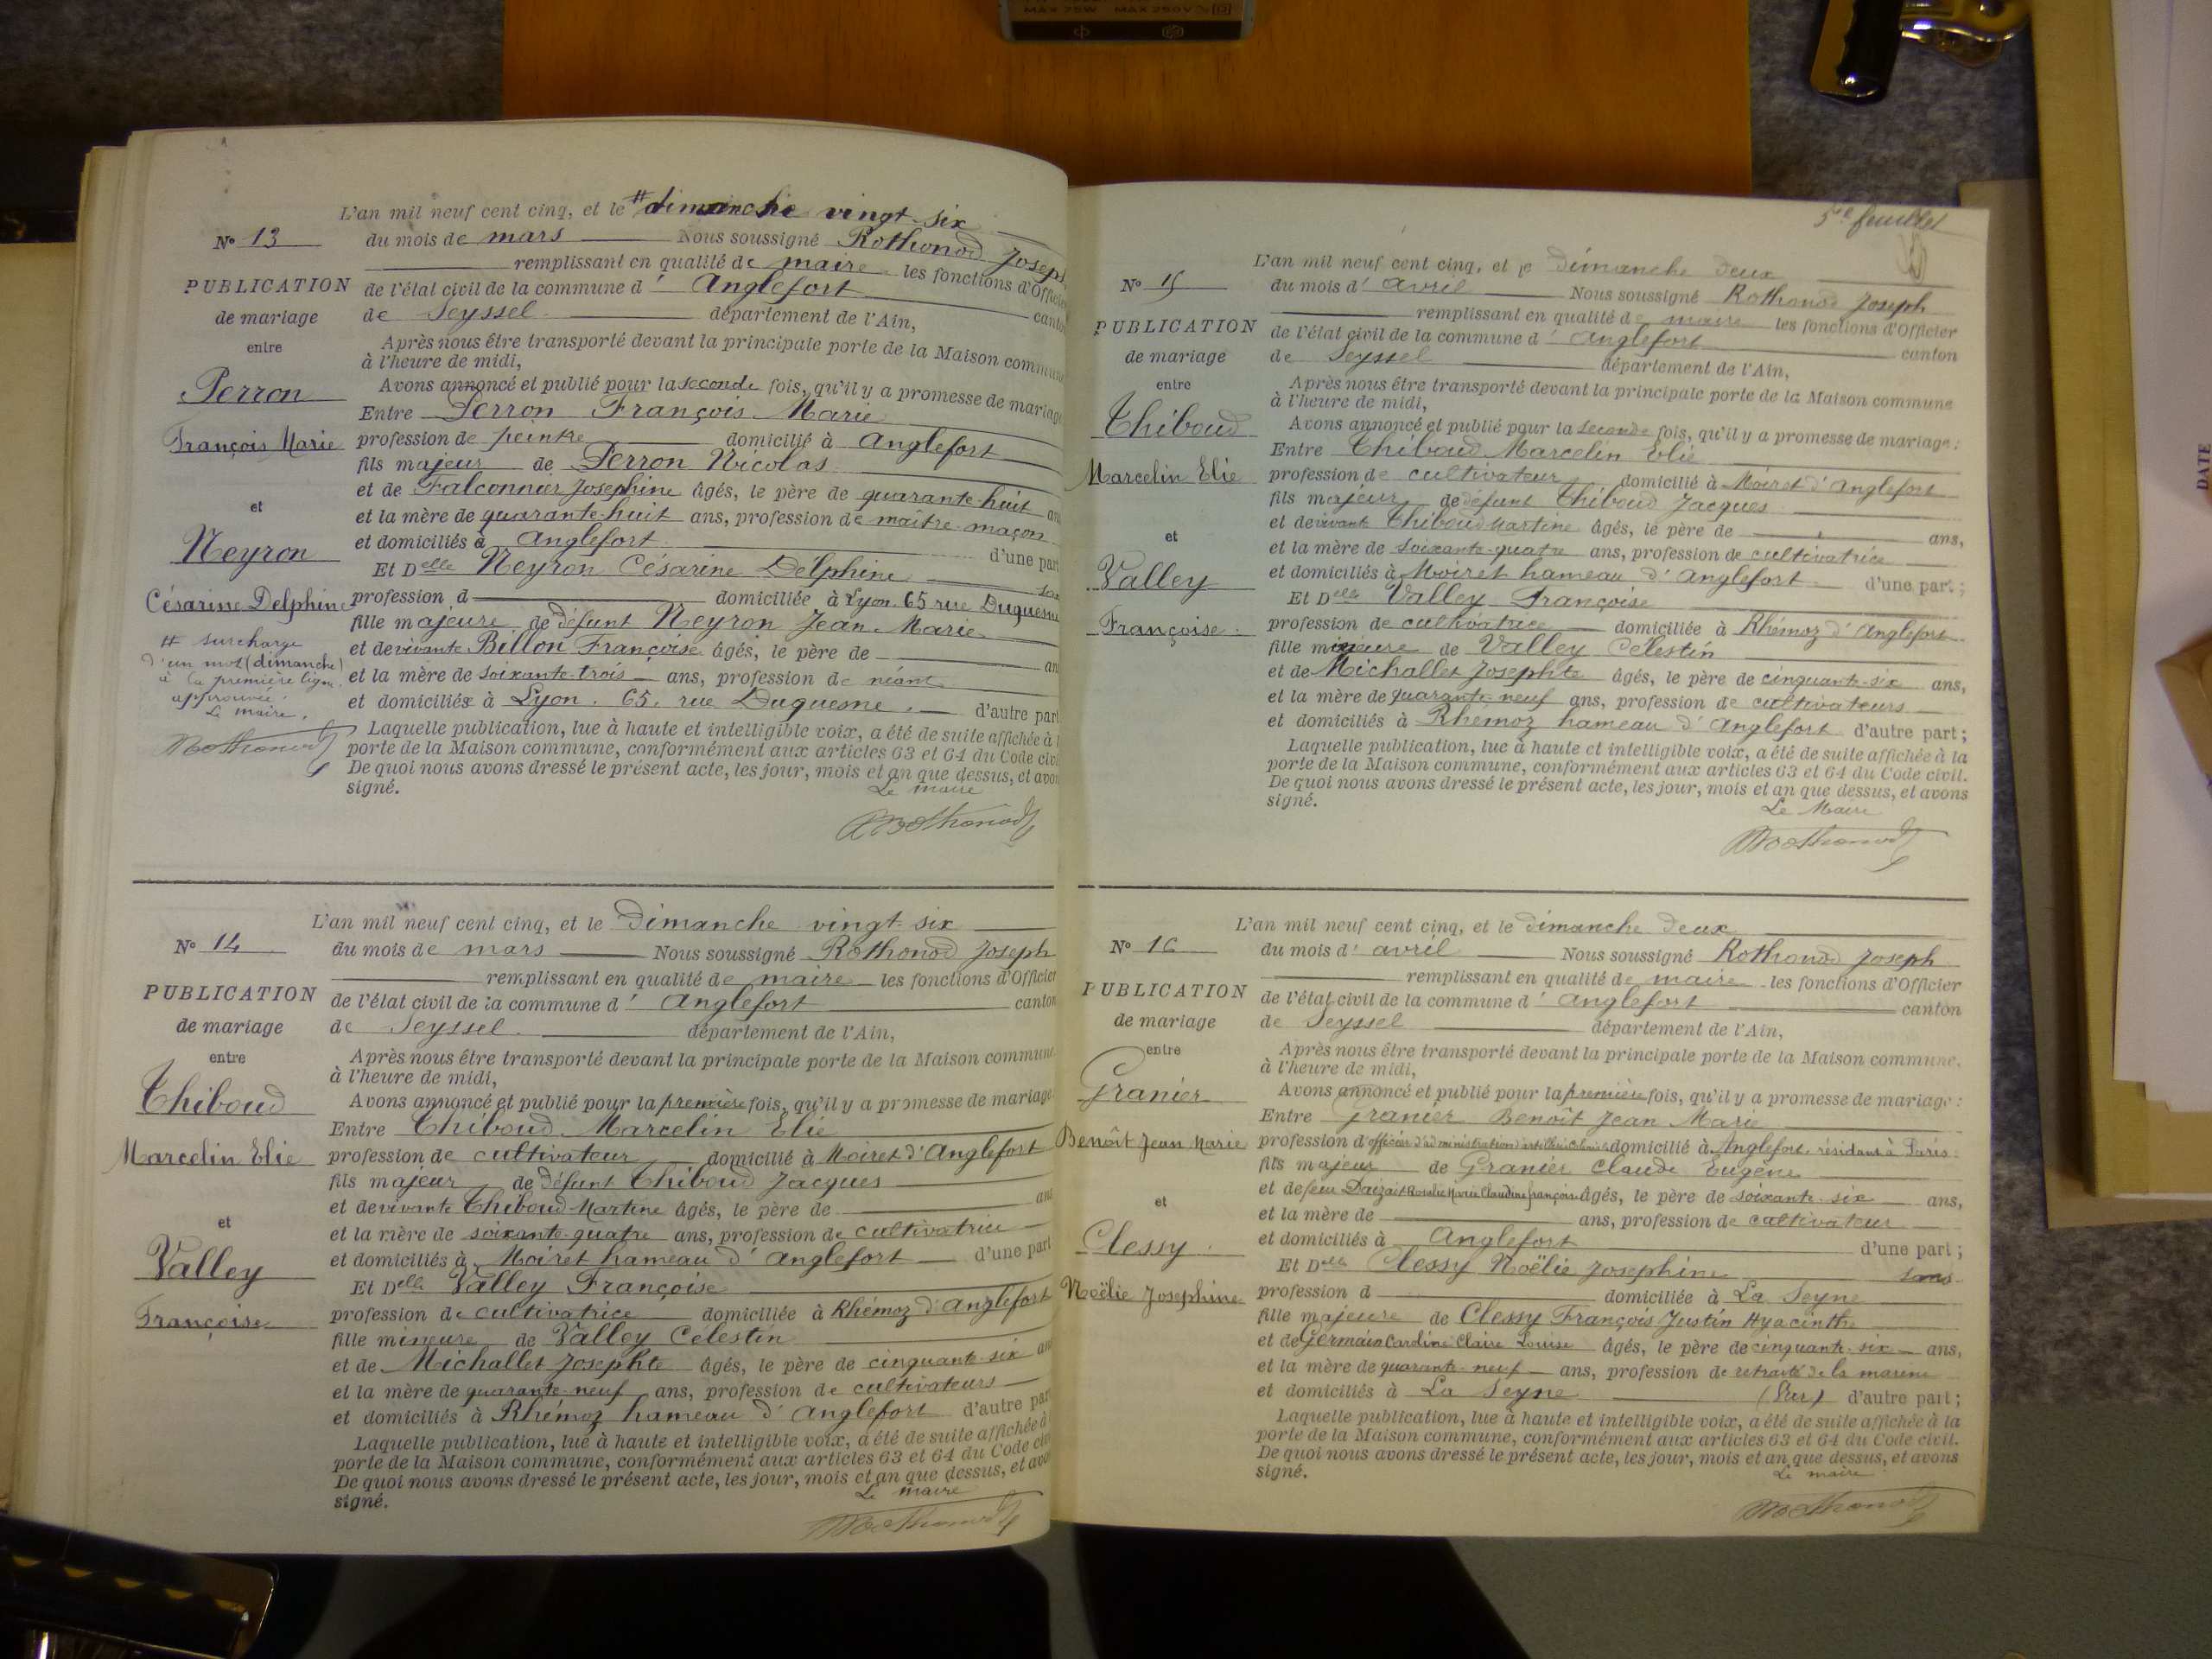 MAX 75W MAX 250V
L'an mil neuf cent cinq, et le # dimanche vingt-six
N° 13
du mois de mars Nous soussigné Rothonod Joseph
remplissant en qualité de maire les fonctions d'Officier
PUBLICATION
de l'état civil de la commune d' Anglefort canton
de mariage
de Seyssel département de l'Ain,
entre
Après nous être transporté devant la principale porte de la Maison commune
à l'heure de midi,
Avons annoncé et publié pour la seconde fois, qu'il y a promesse de mariage
Perron
Entre Perron François Marie
François Marie
profession de peintre domicilié à Anglefort
fils majeur de Perron Nicolas
et de Falconnier Josephine âgés, le père de quarante-huit ans
et
et la mère de quarante-huit ans, profession de maître-maçon
et domiciliés à Anglefort d'une part
Neyron
Et Delle Neyron Césarine Delphine sans
Césarine Delphine
profession d domiciliée à Lyon 65 rue Duquesne
fille majeure de défunt Neyron Jean-Marie
# surcharge
d'un mot (dimanche)
à la première ligne
approuvée.
Le maire.
Rothonod
et de vivante Billon Françoise âgés, le père de ans
et la mère de soixante-trois ans, profession de néant
et domiciliés à Lyon. 65, rue Duquesne. d'autre part
Laquelle publication, lue à haute et intelligible voix, a été de suite affichée à l
porte de la Maison commune, conformément aux articles 63 et 64 du Code civi
De quoi nous avons dressé le présent acte, les jour, mois et an que dessus, et avons
signé.
Le maire
Rothonod
L'an mil neuf cent cinq, et le dimanche vingt-six
N° 14
du mois de mars Nous soussigné Rothonod Joseph
remplissant en qualité de maire les fonctions d'Officier
PUBLICATION
de l'état civil de la commune d' Anglefort canton
de mariage
de Seyssel département de l'Ain,
entre
Après nous être transporté devant la principale porte de la Maison commune
à l'heure de midi,
Thiboud
Avons annoncé et publié pour la première fois, qu'il y a promesse de mariage
Entre Thiboud Marcelin Elie
Marcelin Elie
profession de cultivateur domicilié à Moiret d'Anglefort
fils majeur de défunt Thiboud Jacques
et de vivante Thiboud Martine âgés, le père de ans
et
et la mère de soixante-quatre ans, profession de cultivatrice
et domiciliés à Moiret hameau d'Anglefort d'une part
Valley
Et Delle Valley Françoise
Françoise
profession de cultivatrice domiciliée à Rhémoz d'Anglefort
fille mineure de Valley Célestin
et de Michallet Josephte âgés, le père de cinquante-six ans
et la mère de quarante-neuf ans, profession de cultivateurs
et domiciliés à Rhémoz hameau d'Anglefort d'autre part
Laquelle publication, lue à haute et intelligible voix, a été de suite affichée à l
porte de la Maison commune, conformément aux articles 63 et 64 du Code civ
De quoi nous avons dressé le présent acte, les jour, mois et an que dessus, et avons
signé.
Le maire
Rothonod
5e feuillet
L'an mil neuf cent cinq, et le dimanche deux
N° 15
du mois d' avril Nous soussigné Rothonod Joseph
remplissant en qualité de maire les fonctions d'Officier
PUBLICATION
de l'état civil de la commune d' Anglefort canton
de mariage
de Seyssel département de l'Ain,
entre
Après nous être transporté devant la principale porte de la Maison commune
à l'heure de midi,
Thiboud
Avons annoncé et publié pour la seconde fois, qu'il y a promesse de mariage :
Entre Thiboud Marcelin Elie
Marcelin Elie
profession de cultivateur domicilié à Moiret d'Anglefort
fils majeur de défunt Thiboud Jacques
et de vivante Thiboud Martine âgés, le père de ans,
et
et la mère de soixante-quatre ans, profession de cultivatrice
et domiciliés à Moiret hameau d'Anglefort d'une part ;
Valley
Et Delle Valley Françoise
Françoise
profession de cultivatrice domiciliée à Rhémoz d'Anglefort
fille mineure de Valley Célestin
et de Michallet Josephte âgés, le père de cinquante-six ans,
et la mère de quarante-neuf ans, profession de cultivateurs
et domiciliés à Rhémoz hameau d'Anglefort d'autre part ;
Laquelle publication, lue à haute et intelligible voix, a été de suite affichée à la
porte de la Maison commune, conformément aux articles 63 et 64 du Code civil.
De quoi nous avons dressé le présent acte, les jour, mois et an que dessus, et avons
signé.
Le Maire
Rothonod
L'an mil neuf cent cinq, et le dimanche deux
N° 16
du mois d' avril Nous soussigné Rothonod Joseph
remplissant en qualité de maire les fonctions d'Officier
PUBLICATION
de l'état civil de la commune d' Anglefort canton
de mariage
de Seyssel département de l'Ain,
entre
Après nous être transporté devant la principale porte de la Maison commune,
à l'heure de midi,
Granier
Avons annoncé et publié pour la première fois, qu'il y a promesse de mariage :
Entre Granier Benoît Jean Marie
Benoît Jean Marie
profession d'officier d'administration d'artillerie coloniale domicilié à Anglefort, résidant à Paris
fils majeur de Granier Claude Eugène
et de feue Rosalie Marie Claudine Françoise âgés, le père de soixante-six ans,
et
et la mère de ans, profession de cultivateur
et domiciliés à Anglefort d'une part ;
Clessy
Et Delle Clessy Noëlie Josephine sans
Noëlie Josephine
profession d domiciliée à La Seyne
fille majeure de Clessy François Justin Hyacinthe
et de Germain Caroline Claire Louise âgés, le père de cinquante-six ans,
et la mère de quarante-neuf ans, profession de retraité de la marine
et domiciliés à La Seyne (Var) d'autre part ;
Laquelle publication, lue à haute et intelligible voix, a été de suite affichée à la
porte de la Maison commune, conformément aux articles 63 et 64 du Code civil.
De quoi nous avons dressé le présent acte, les jour, mois et an que dessus, et avons
signé.
Le maire
Rothonod
DATE